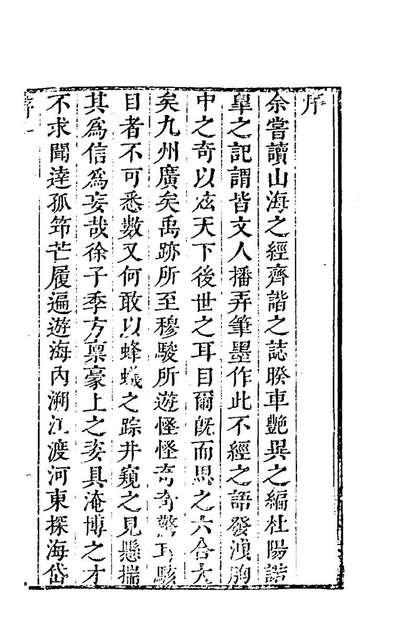 序
余嘗讀山海之經齊諧之誌睽車艷異之編杜陽諧
臯之記謂皆文人播弄筆墨作此不經之語發洩胸
中之奇以炫天下後世之耳目爾旣而思之六合大
矣九州廣矣禹跡所至穆駿所遊怪怪奇奇驚耳駭
目者不可悉數又何敢以蜂蟻之踪井窺之見懸揣
其爲信爲妄哉徐子季方禀豪上之姿具淹博之才
不求聞達孤笻芒履遍遊海內溯江渡河東探海岱
序 一